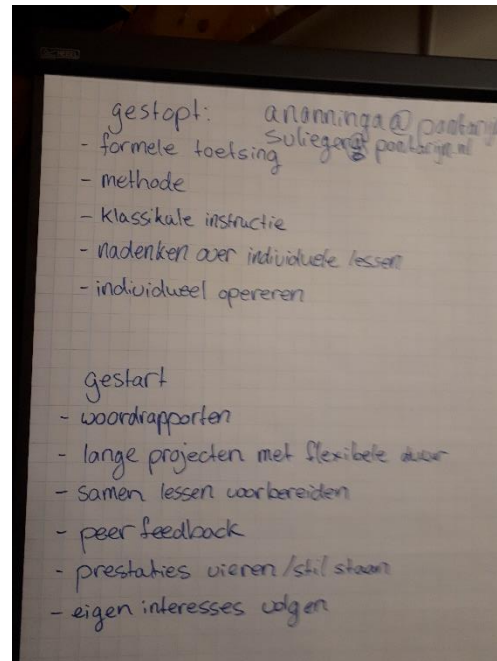 gestopt: ananninga@
- formele toetsing
- methode
- klassikale instructie
- nadenken over individuele lessen
- individueel opereren
gestart
- woordrapporten
- lange projecten met flexibele duur
- samen lessen voorbereiden
- peer feedback
- prestaties vieren/stil staan
- eigen interesses volgen